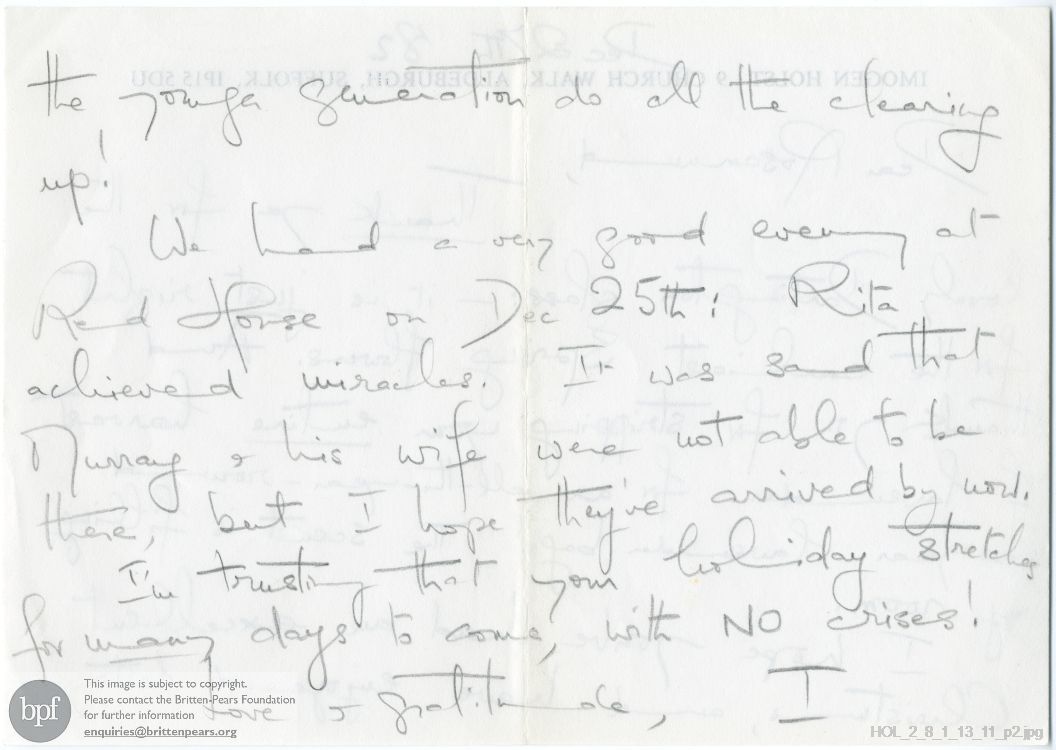 the younger generation do all the clearing
up!
We had a very good evening at
Red House on Dec 25th: Rita
achieved miracles. It was sad that
Murray & his wife were not able to be
there, but I hope they've arrived by now.
I'm trusting that your holiday stretches
for many days to come, with NO crises!
Love & gratitude, I
bpf
This image is subject to copyright.
Please contact the Britten-Pears Foundation
for further information
enquiries@brittenpears.org
HOL_2_8_1_13_11_p2.jpg